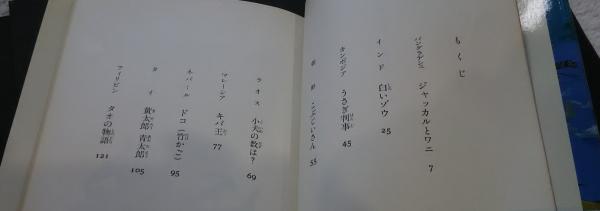 もくじ
バングラデシュ ジャッカルとワニ 7
インド 白いゾウ 25
カンボジア うさぎ判事 45
こぶじいさん 55
ラオス 小犬の数は? 69
マレーシア キバ王 77
ネパール ドコ(竹かご) 95
タイ 黄太郎 青太郎 105
フィリピン タオの物語 121